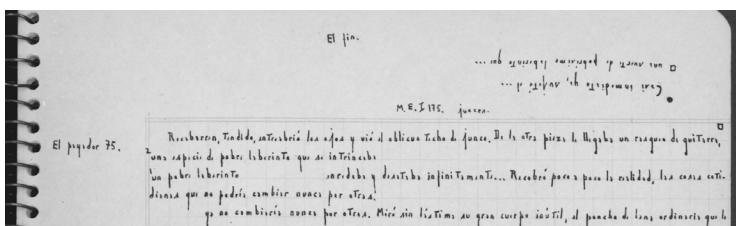 El fin.
una suerte de pobrísimo laberinto que ...
M.E.I 175. jueves.
El payador 75.
Recabarren, tendido, entreabrió los ojos y vió el oblicuo techo de junco. De la otra pieza le llegaba un rasgueo de guitarra,
una especie de pobre laberinto que se intrincaba
un pobre laberinto enredaba y desataba infinitamente... Recobró poco a poco la realidad, las cosas coti-
dianas que no podría cambiar nunca por otras.
ya no cambiaría nunca por otras. Miró sin lástima su gran cuerpo inútil, el poncho de lana ordinaria que le